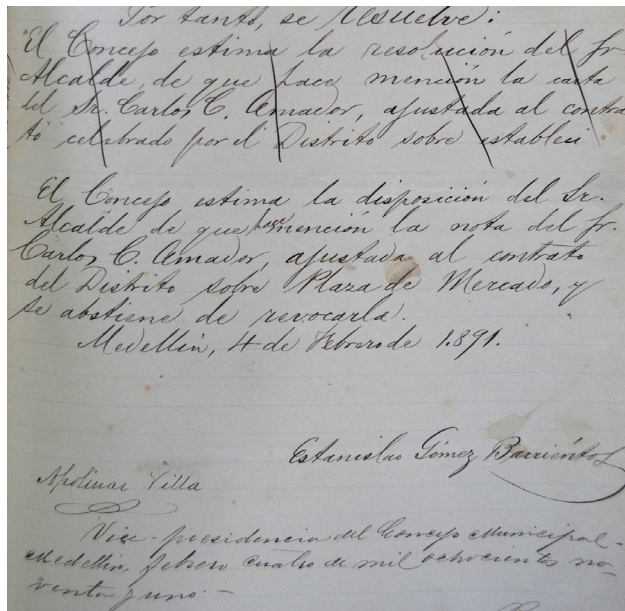 Por tanto, se resuelve:
"El Concejo estima la resolución del Sr
Alcalde, de que hace mención la carta
del Sr. Carlos C. Amador, ajustada al contra
to celebrado por el Distrito sobre estableci
El Concejo estima la disposición del Sr.
Alcalde de que hace mención la nota del Sr.
Carlos C. Amador, ajustada al contrato
del Distrito sobre Plaza de Mercado, y
se abstiene de revocarla.
Medellín, 4 de Febrero de 1.891.
Estanislao Gómez Barrientos
Apolinar Villa
Vice-presidencia del Concejo Municipal-
Medellín, febrero cuatro de mil ochocientos no-
venta y uno.-